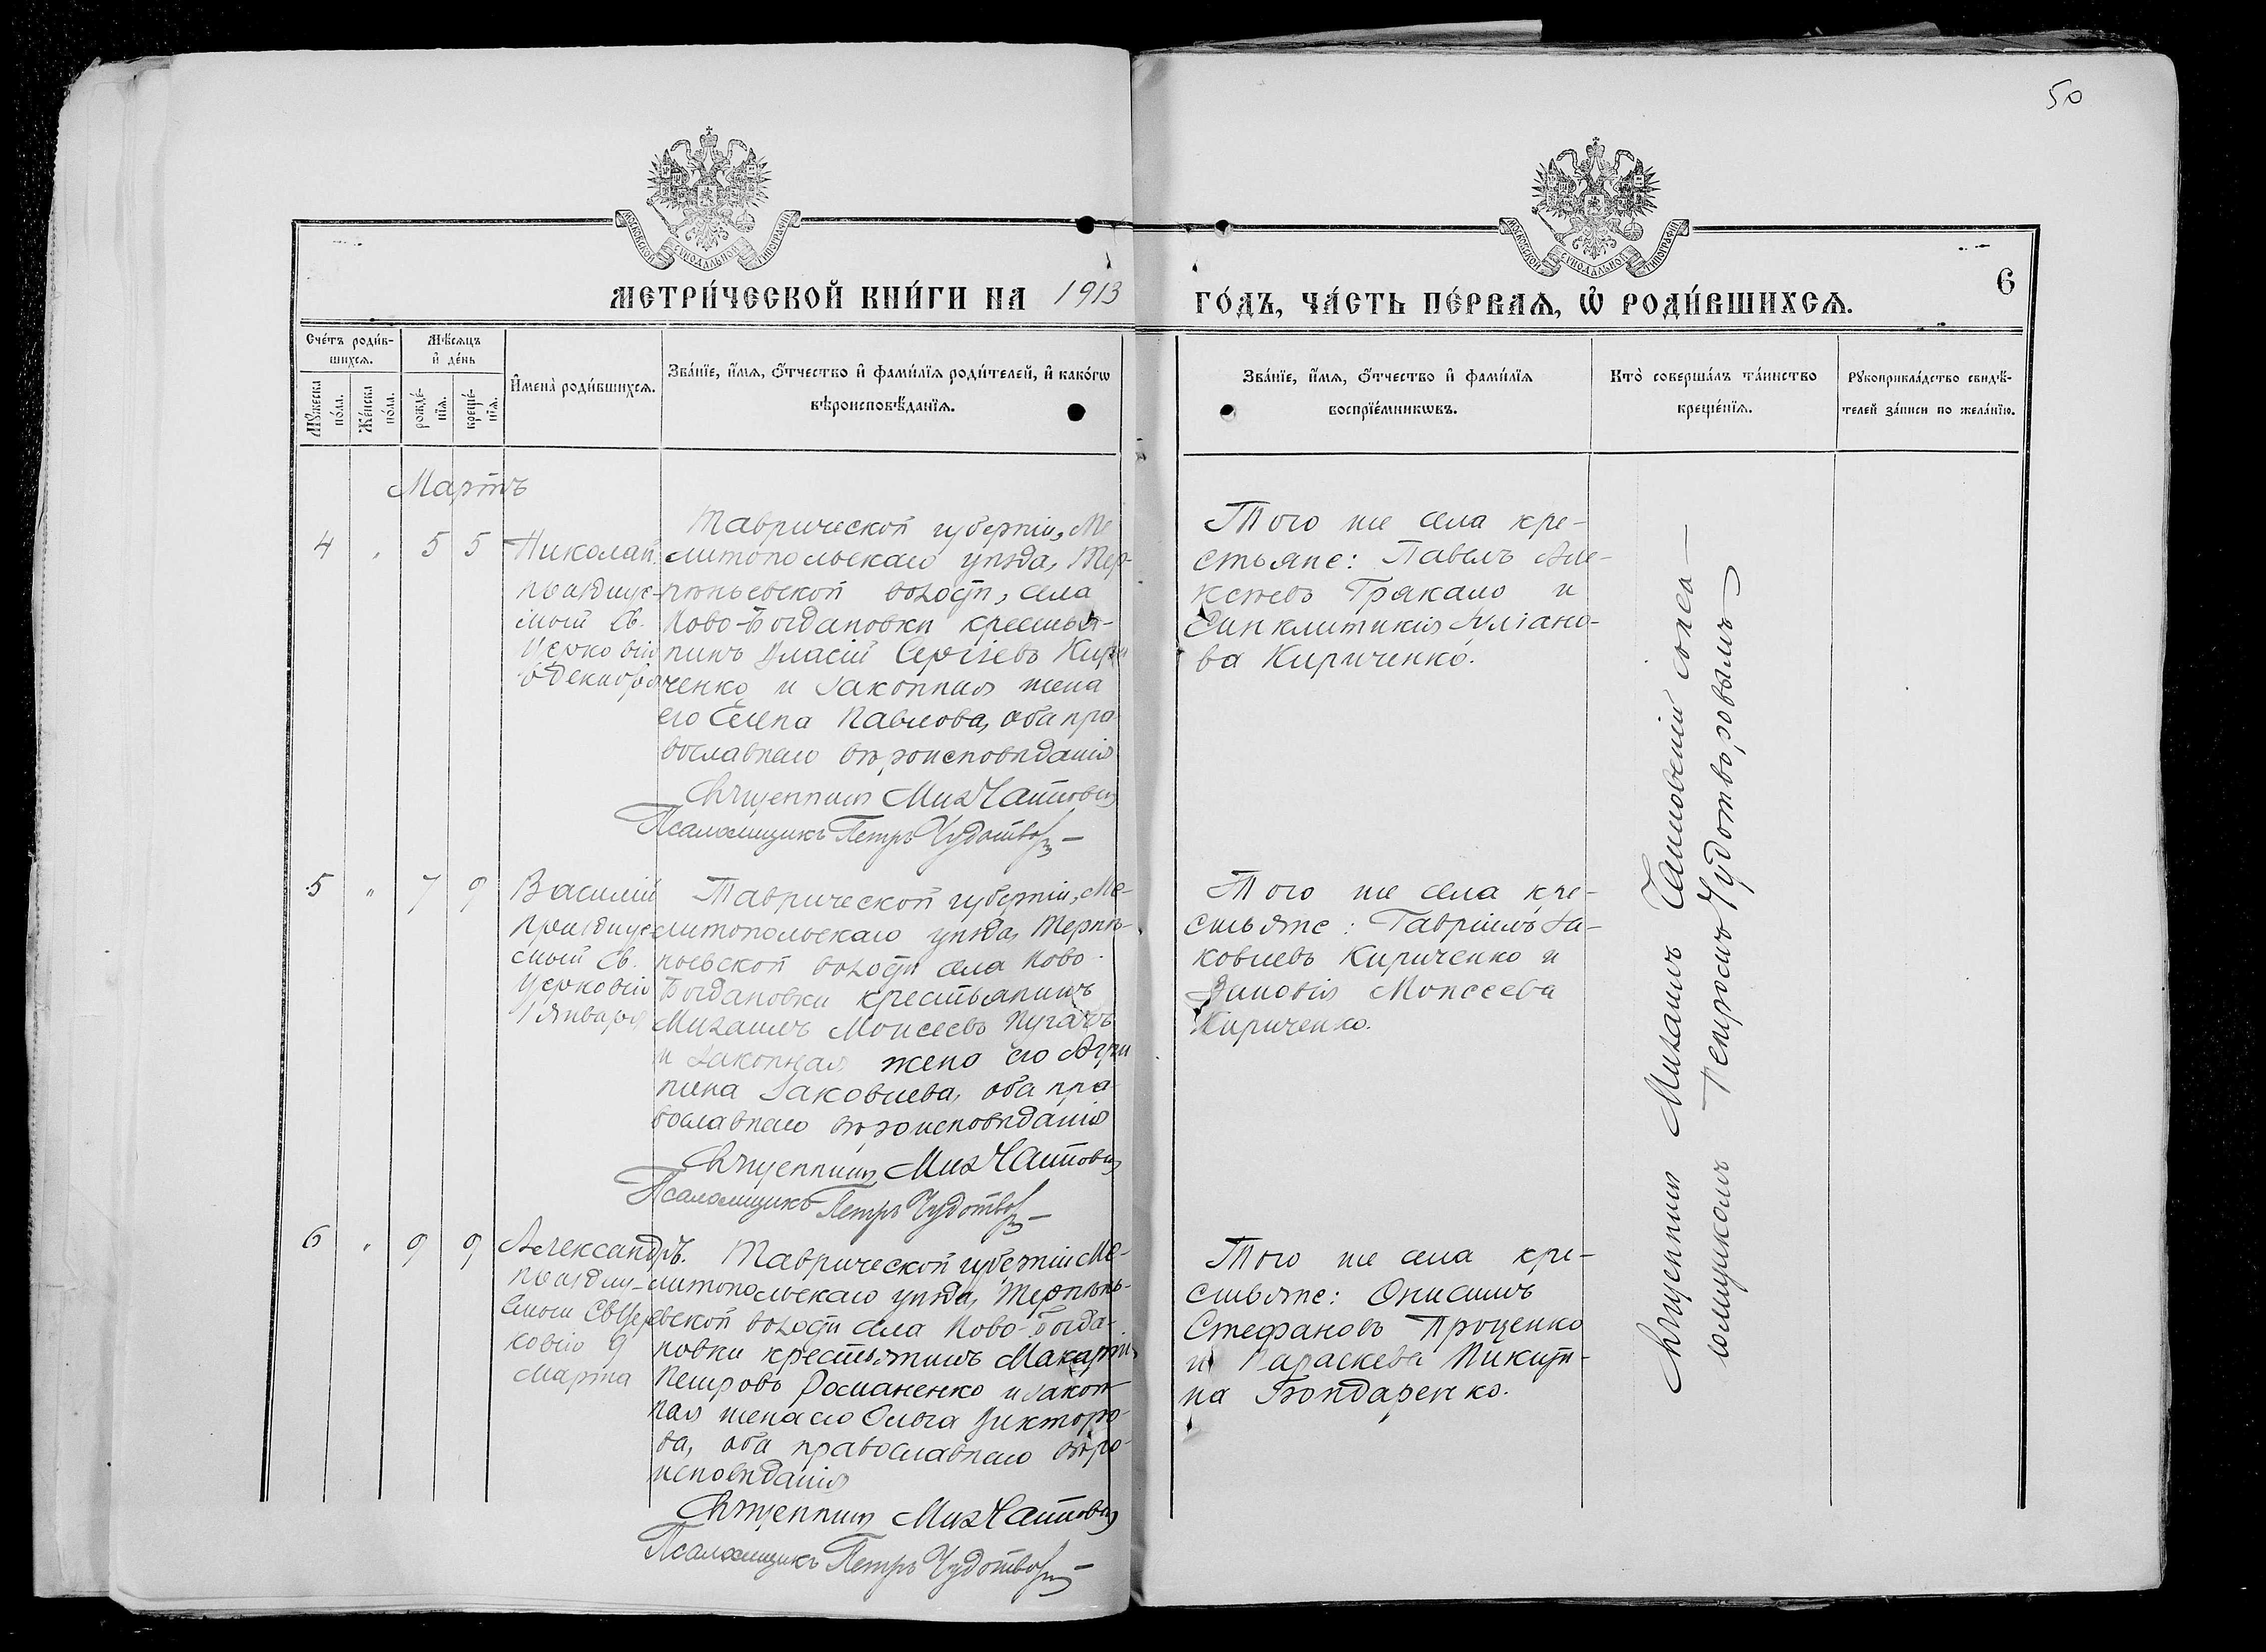 50
МОСКОВСКОЙ СѴНОДАЛЬНОЙ ТИПОГРАФІИ
МОСКОВСКОЙ СѴНОДАЛЬНОЙ ТИПОГРАФІИ
МЕТРИ́ЧЕСКОЙ КНИ́ГИ НА 1913
ГО́ДЪ, ЧА́СТЬ ПЕ́РВАѦ, Ѽ РОДИ́ВШИХСѦ.
6
Сче́тъ роди́в-
шихсѧ.
Мꙋ́жеска
по́ла.
Же́нска
по́ла.
Мѣ́сѧцъ
и҆ де́нь
рожде́-
нїѧ.
креще́-
нїѧ.
И҆мена̀ роди́вшихсѧ.
Зва́нїе, и҆́мѧ, ѻ҆́тчество и҆ фами́лїѧ роди́телей, и҆ како́гѡ
вѣроисповѣ́данїѧ.
Зва́нїе, и҆́мѧ, ѻ҆́тчество и҆ фами́лїѧ
воспрїе́мникѡвъ.
Кто̀ соверша́лъ та́инство
креще́нїѧ.
Рꙋкоприкла́дство свидѣ́-
телей за́писи по жела́нїю.
Мартъ
4 " 5 5
Николай
празднуе-
мый Св.
Церковію
6 декабря
Таврической губерніи, Ме
литопольскаго уѣзда, Тер-
пѣньевской волости, села
Ново-Богдановки крестья-
нинъ Власій Сергіевъ Кири
ченко и законная жена
его Елена Павлова, оба пра
вославнаго вѣроисповѣданія
Священникъ Мих Чайповскій
Псаломщикъ Петръ Чудотвор
Того же села кре-
стьяне: Павелъ Але-
ксѣевъ Гракало и
Синклитикія Уліано-
ва Кириченко.
5 " 7 9
Василій
празднуе
мый Св.
Церковію
1 Января
Таврической губерніи, Ме-
литопольскаго уѣзда, Терпѣ-
ньевской волости села Ново-
Богдановки крестьянинъ
Михаилъ Моисеевъ Пугачъ
и законная жена его Агри
пина Іаковлева, оба пра
вославнаго вѣроисповѣданія
Священникъ Мих
Псаломщикъ Петръ Чудотвор
Того же села кре-
стьяне: Гавріилъ Іа-
ковлевъ Кириченко и
Зиновія Моисеева
Кириченко.
6 " 9 9
Александръ.
праздну-
емый Св Цер
ковію 9
Марта
Таврической губерніи Ме-
литопольскаго уѣзда, Терпѣнь-
евской волости села Ново-Богда-
новки крестьянинъ Макарій
Петровъ Романенко и закон
ная жена его Ольга Викторо-
ва, оба православнаго вѣро-
исповѣданія
Священникъ Мих
Псаломщикъ Петръ Чудотвор
Того же села кре-
стьяне: Онисимъ
Стефановъ Проценко
и Параскева Никити-
на Бондаренко.
Священникъ Михаилъ съ пса-
ломщикомъ Петромъ Чудотворовымъ